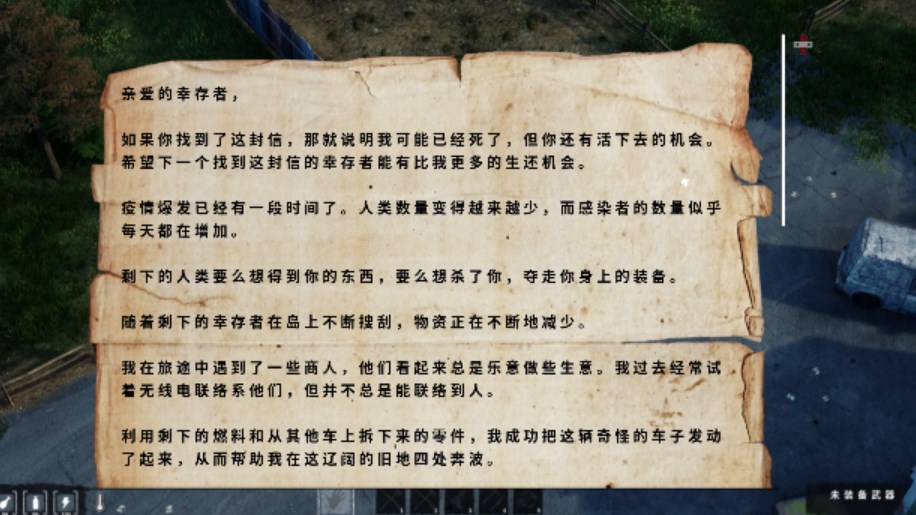 亲爱的幸存者，
如果你找到了这封信，那就说明我可能已经死了，但你还有活下去的机会。
希望下一个找到这封信的幸存者能有比我更多的生还机会。
疫情爆发已经有一段时间了。人类数量变得越来越少，而感染者的数量似乎
每天都在增加。
剩下的人类要么想得到你的东西，要么想杀了你，夺走你身上的装备。
随着剩下的幸存者在岛上不断搜刮，物资正在不断地减少。
我在旅途中遇到了一些商人，他们看起来总是乐意做些生意。我过去经常试
着无线电联络系他们，但并不总是能联络到人。
利用剩下的燃料和从其他车上拆下来的零件，我成功把这辆奇怪的车子发动
了起来，从而帮助我在这辽阔的旧地四处奔波。
未装备武器